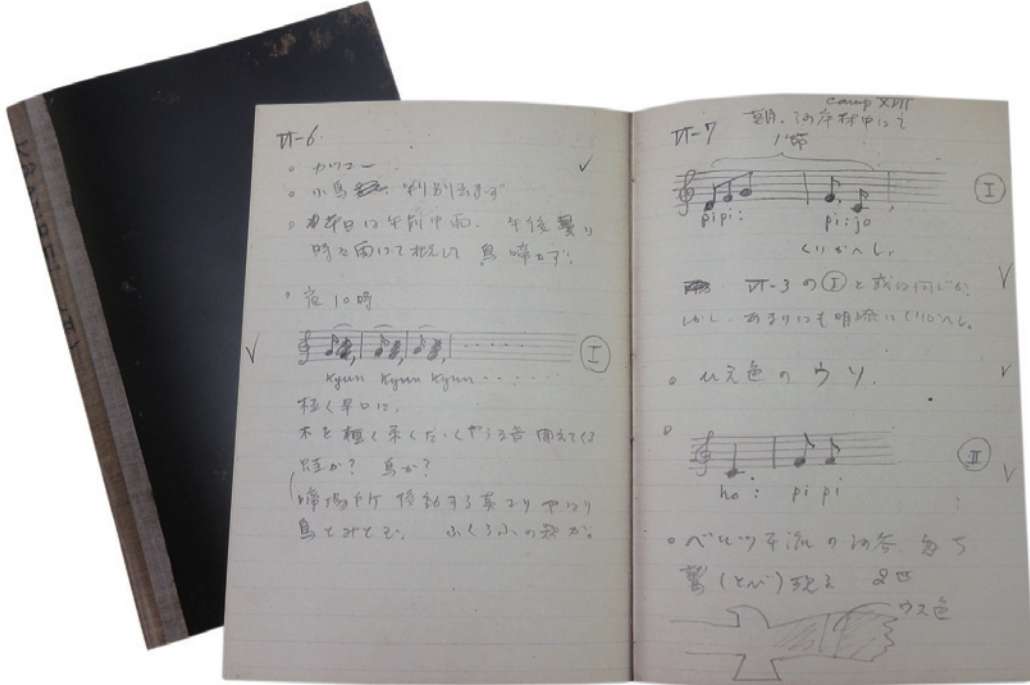 VI-6
○ カッコー
○ 小鳥 判別出来ず
○ 本日は午前中雨. 午後曇り
時々雨にて概して 鳥 啼かず.
○ 夜 10時
I
Kyun Kyun Kyun
極く早口に.
木を軽く柔くたたくやうな音 聞えてくる
蛙か? 鳥か?
啼場所 移動する
鳥とみとむ. ふくろふの類か.
Camp XVII
VI-7 朝. 河岸林中にて
1節
I
pipi: pi:jo
くりかへし.
VI-3 の I と或は同じか.
しかし あまりにも明瞭にくりかへし.
○ 色の ウソ.
II
ho: pi pi
○ の河谷
鷲 (とび) 現る 2匹
ウス色